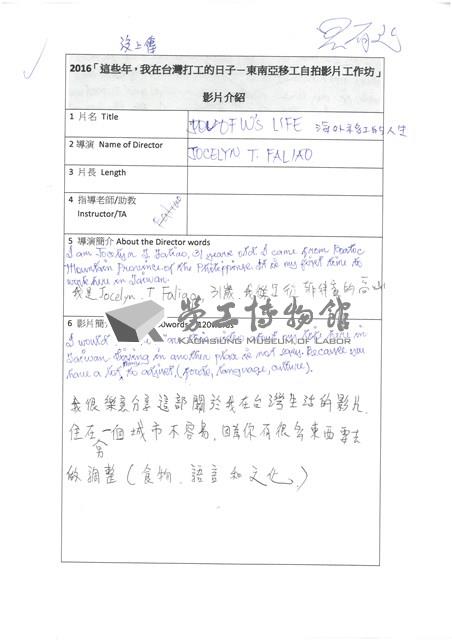 沒上傳
2016「這些年，我在台灣打工的日子－東南亞移工自拍影片工作坊」
影片介紹
1 片名 Title
OFW's LIFE 海外移工的人生
2 導演 Name of Director
JOCELYN T. FALIAO
3 片長 Length
4 指導老師/助教
Instructor/TA
5 導演簡介 About the Director words
I am Jocelyn T. Faliao, 31 years old I came from
Mountain Province of the Philippines. It is my first time to
work here in Taiwan.
我是 Jocelyn T Faliao, 31歲, 我從 菲律賓的高山
6 影片簡
勞工博物館
KAOHSIUNG MUSEUM OF LABOR
I would here in
Taiwan. Living in another place is not easy. Because you
have a lot to adjust. (foods, language, culture).
我很樂意分享這部關於我在台灣生活的影片.
住在另一個城市不容易, 因為你有很多東西要去
做調整 (食物、語言和文化.)